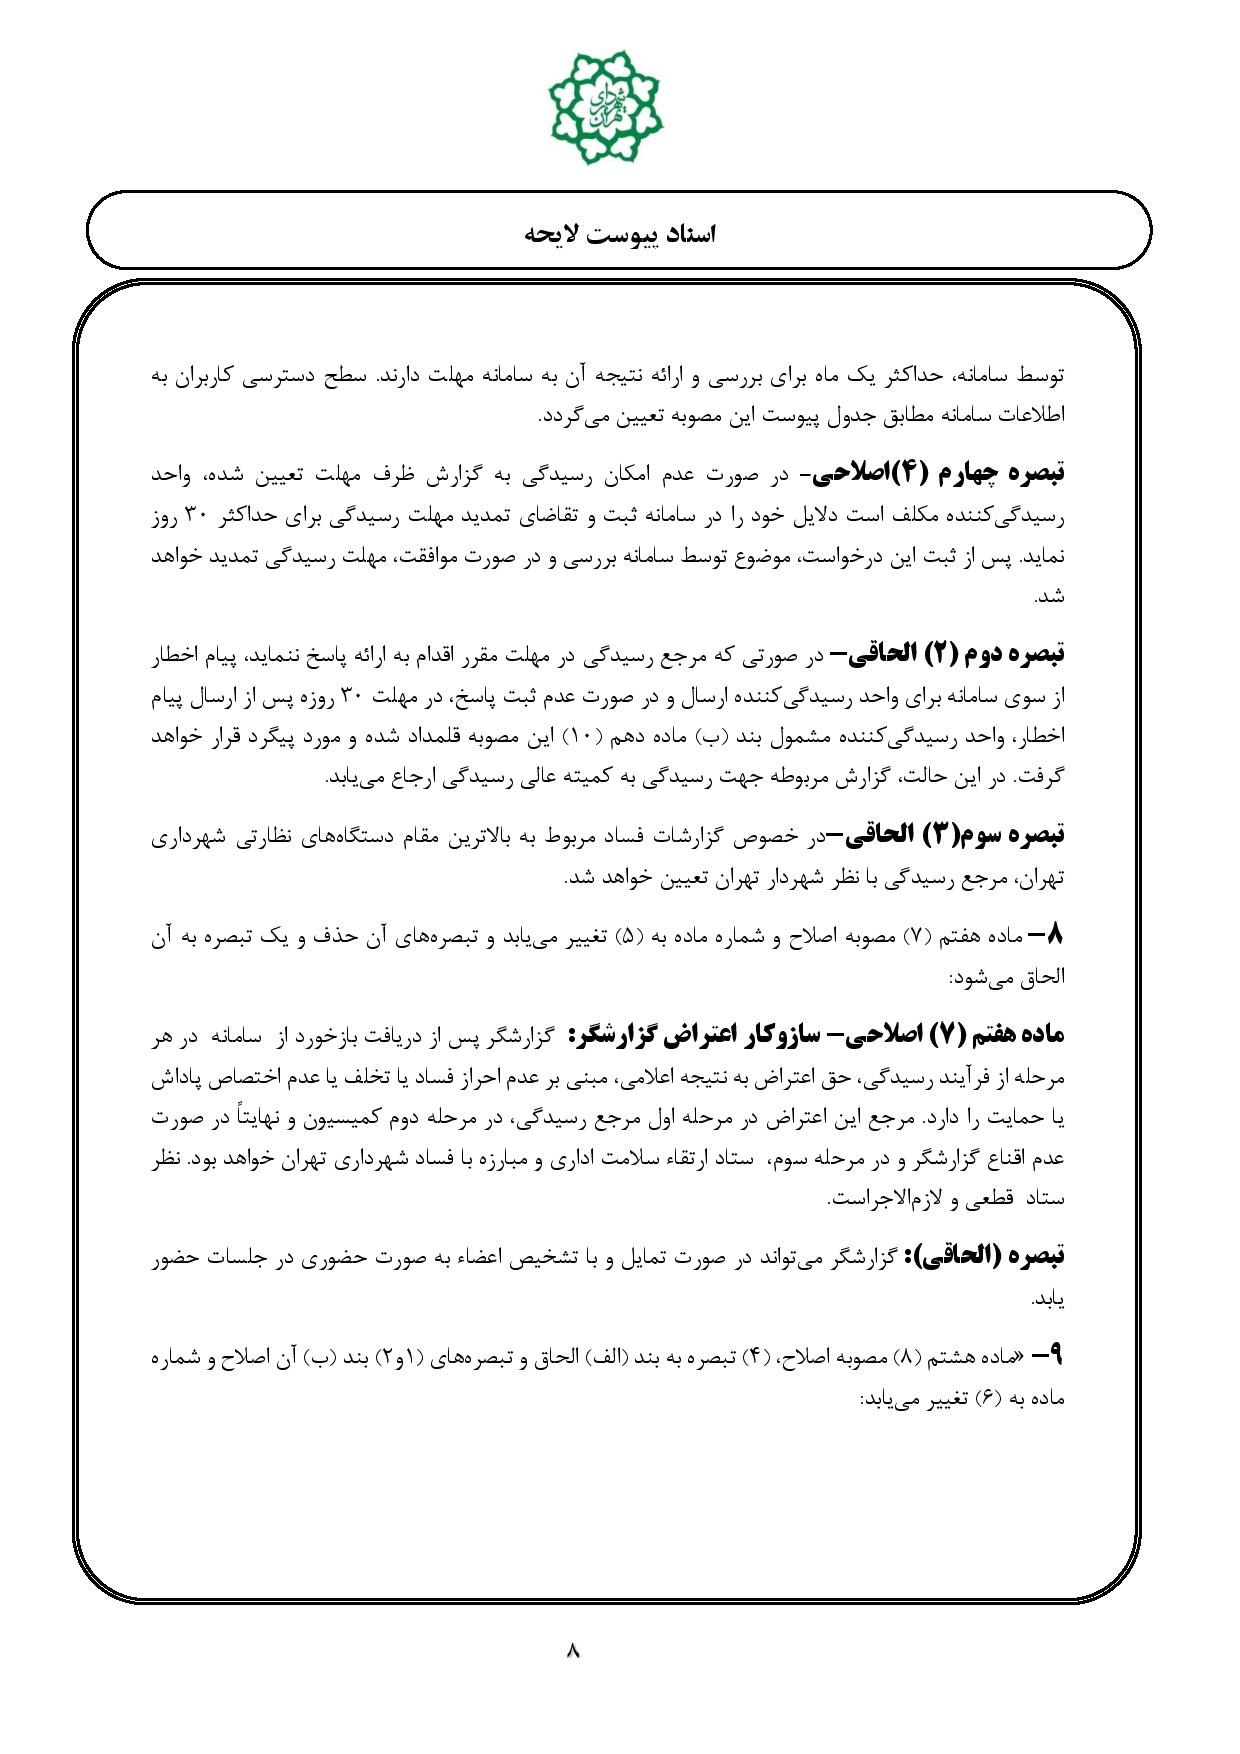 شهرداری تهران
اسناد پیوست لایحه
توسط سامانه، حداکثر یک ماه برای بررسی و ارائه نتیجه آن به سامانه مهلت دارند. سطح دسترسی کاربران به
اطلاعات سامانه مطابق جدول پیوست این مصوبه تعیین می‌گردد.
تبصره چهارم (۴)اصلاحی- در صورت عدم امکان رسیدگی به گزارش ظرف مهلت تعیین شده، واحد
رسیدگی‌کننده مکلف است دلایل خود را در سامانه ثبت و تقاضای تمدید مهلت رسیدگی برای حداکثر ۳۰ روز
نماید. پس از ثبت این درخواست، موضوع توسط سامانه بررسی و در صورت موافقت، مهلت رسیدگی تمدید خواهد
شد.
تبصره دوم (۲) الحاقی– در صورتی که مرجع رسیدگی در مهلت مقرر اقدام به ارائه پاسخ ننماید، پیام اخطار
از سوی سامانه برای واحد رسیدگی‌کننده ارسال و در صورت عدم ثبت پاسخ، در مهلت ۳۰ روزه پس از ارسال پیام
اخطار، واحد رسیدگی‌کننده مشمول بند (ب) ماده دهم (۱۰) این مصوبه قلمداد شده و مورد پیگرد قرار خواهد
گرفت. در این حالت، گزارش مربوطه جهت رسیدگی به کمیته عالی رسیدگی ارجاع می‌یابد.
تبصره سوم(۳) الحاقی–در خصوص گزارشات فساد مربوط به بالاترین مقام دستگاه‌های نظارتی شهرداری
تهران، مرجع رسیدگی با نظر شهردار تهران تعیین خواهد شد.
۸– ماده هفتم (۷) مصوبه اصلاح و شماره ماده به (۵) تغییر می‌یابد و تبصره‌های آن حذف و یک تبصره به آن
الحاق می‌شود:
ماده هفتم (۷) اصلاحی– سازوکار اعتراض گزارشگر: گزارشگر پس از دریافت بازخورد از سامانه در هر
مرحله از فرآیند رسیدگی، حق اعتراض به نتیجه اعلامی، مبنی بر عدم احراز فساد یا تخلف یا عدم اختصاص پاداش
یا حمایت را دارد. مرجع این اعتراض در مرحله اول مرجع رسیدگی، در مرحله دوم کمیسیون و نهایتاً در صورت
عدم اقناع گزارشگر و در مرحله سوم، ستاد ارتقاء سلامت اداری و مبارزه با فساد شهرداری تهران خواهد بود. نظر
ستاد قطعی و لازم‌الاجراست.
تبصره (الحاقی): گزارشگر می‌تواند در صورت تمایل و با تشخیص اعضاء به صورت حضوری در جلسات حضور
یابد.
۹– «ماده هشتم (۸) مصوبه اصلاح، (۴) تبصره به بند (الف) الحاق و تبصره‌های (۱و۲) بند (ب) آن اصلاح و شماره
ماده به (۶) تغییر می‌یابد:
۸